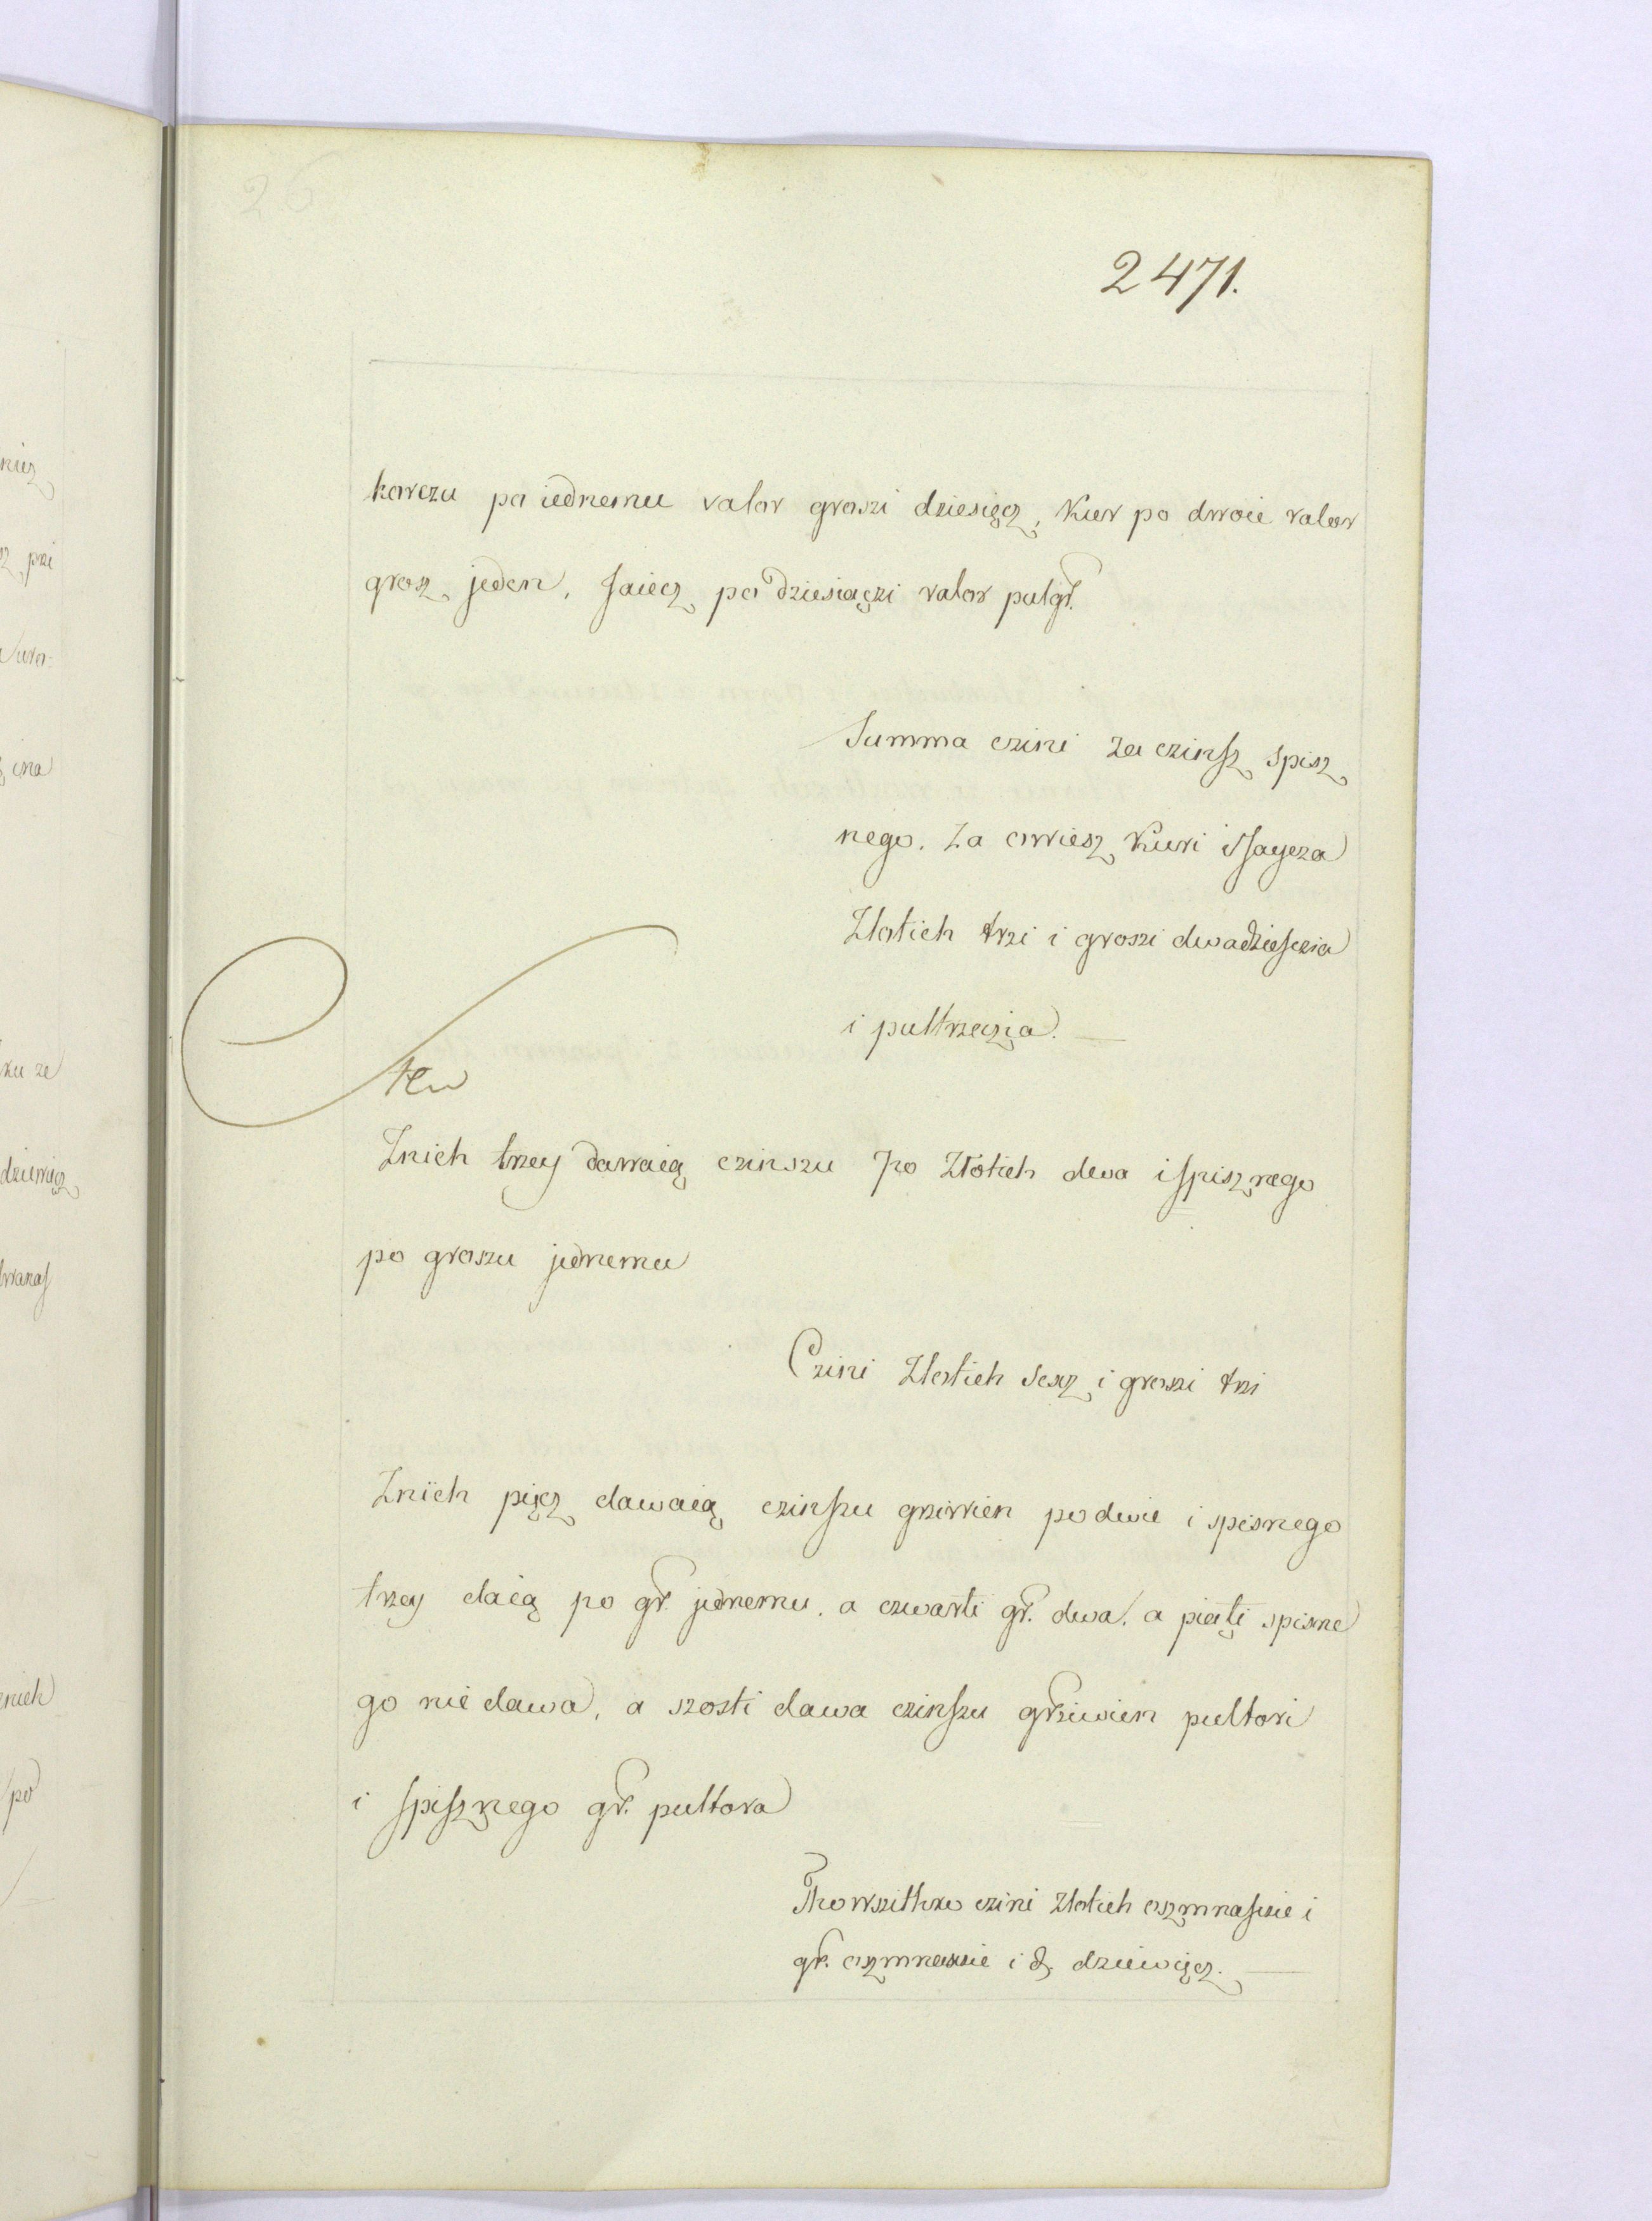 26
2471.
korczu po iednemu valor groszi dziesięcz, Kur po dwoie valor
grosz jeden, Jaiecz po dziesiączi valor pulgr.
Summa czini za czinsz spisz
nego. za owiesz Kuri i Jaycza
Złotich trzi i groszi dwadziescia
i pultrzeczia. —
Item
Znich trzey dawaią czinszu po Złotich dwa i spisznego
po groszu jednemu
Czini Złotich Sesz i groszi trzi
Znich pięcz dawaią czinszu grziwien po dwie i spisnego
trzey daią po gr. jednemu. a czwarti gr. dwa. a piąti spisne
go nie dawa, a szosti dawa czinszu grziwien pultori
i spisznego gr. pultora
Tho wszithko czini złotich oszmnascie i
gr. oszmnascie i d. dziewięcz. —